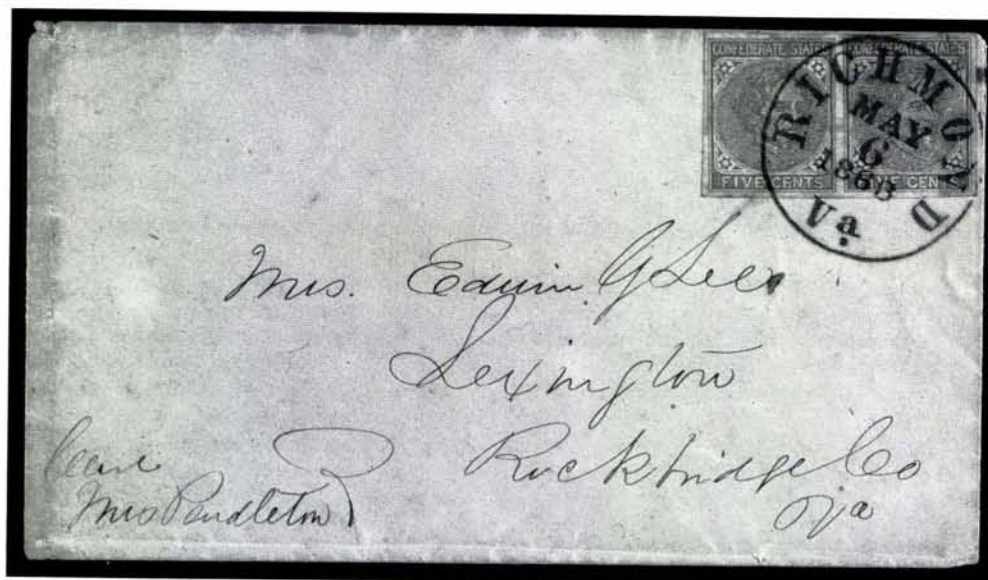 CONFEDERATE STATES CONFEDERATE STATES
FIVE CENTS FIVE CENT
RICHMOND
MAY
6
1863
Va.
Mrs. Edwin G Lee
Lexington
Rockbridge Co
Va
Care
Mrs Pendleton